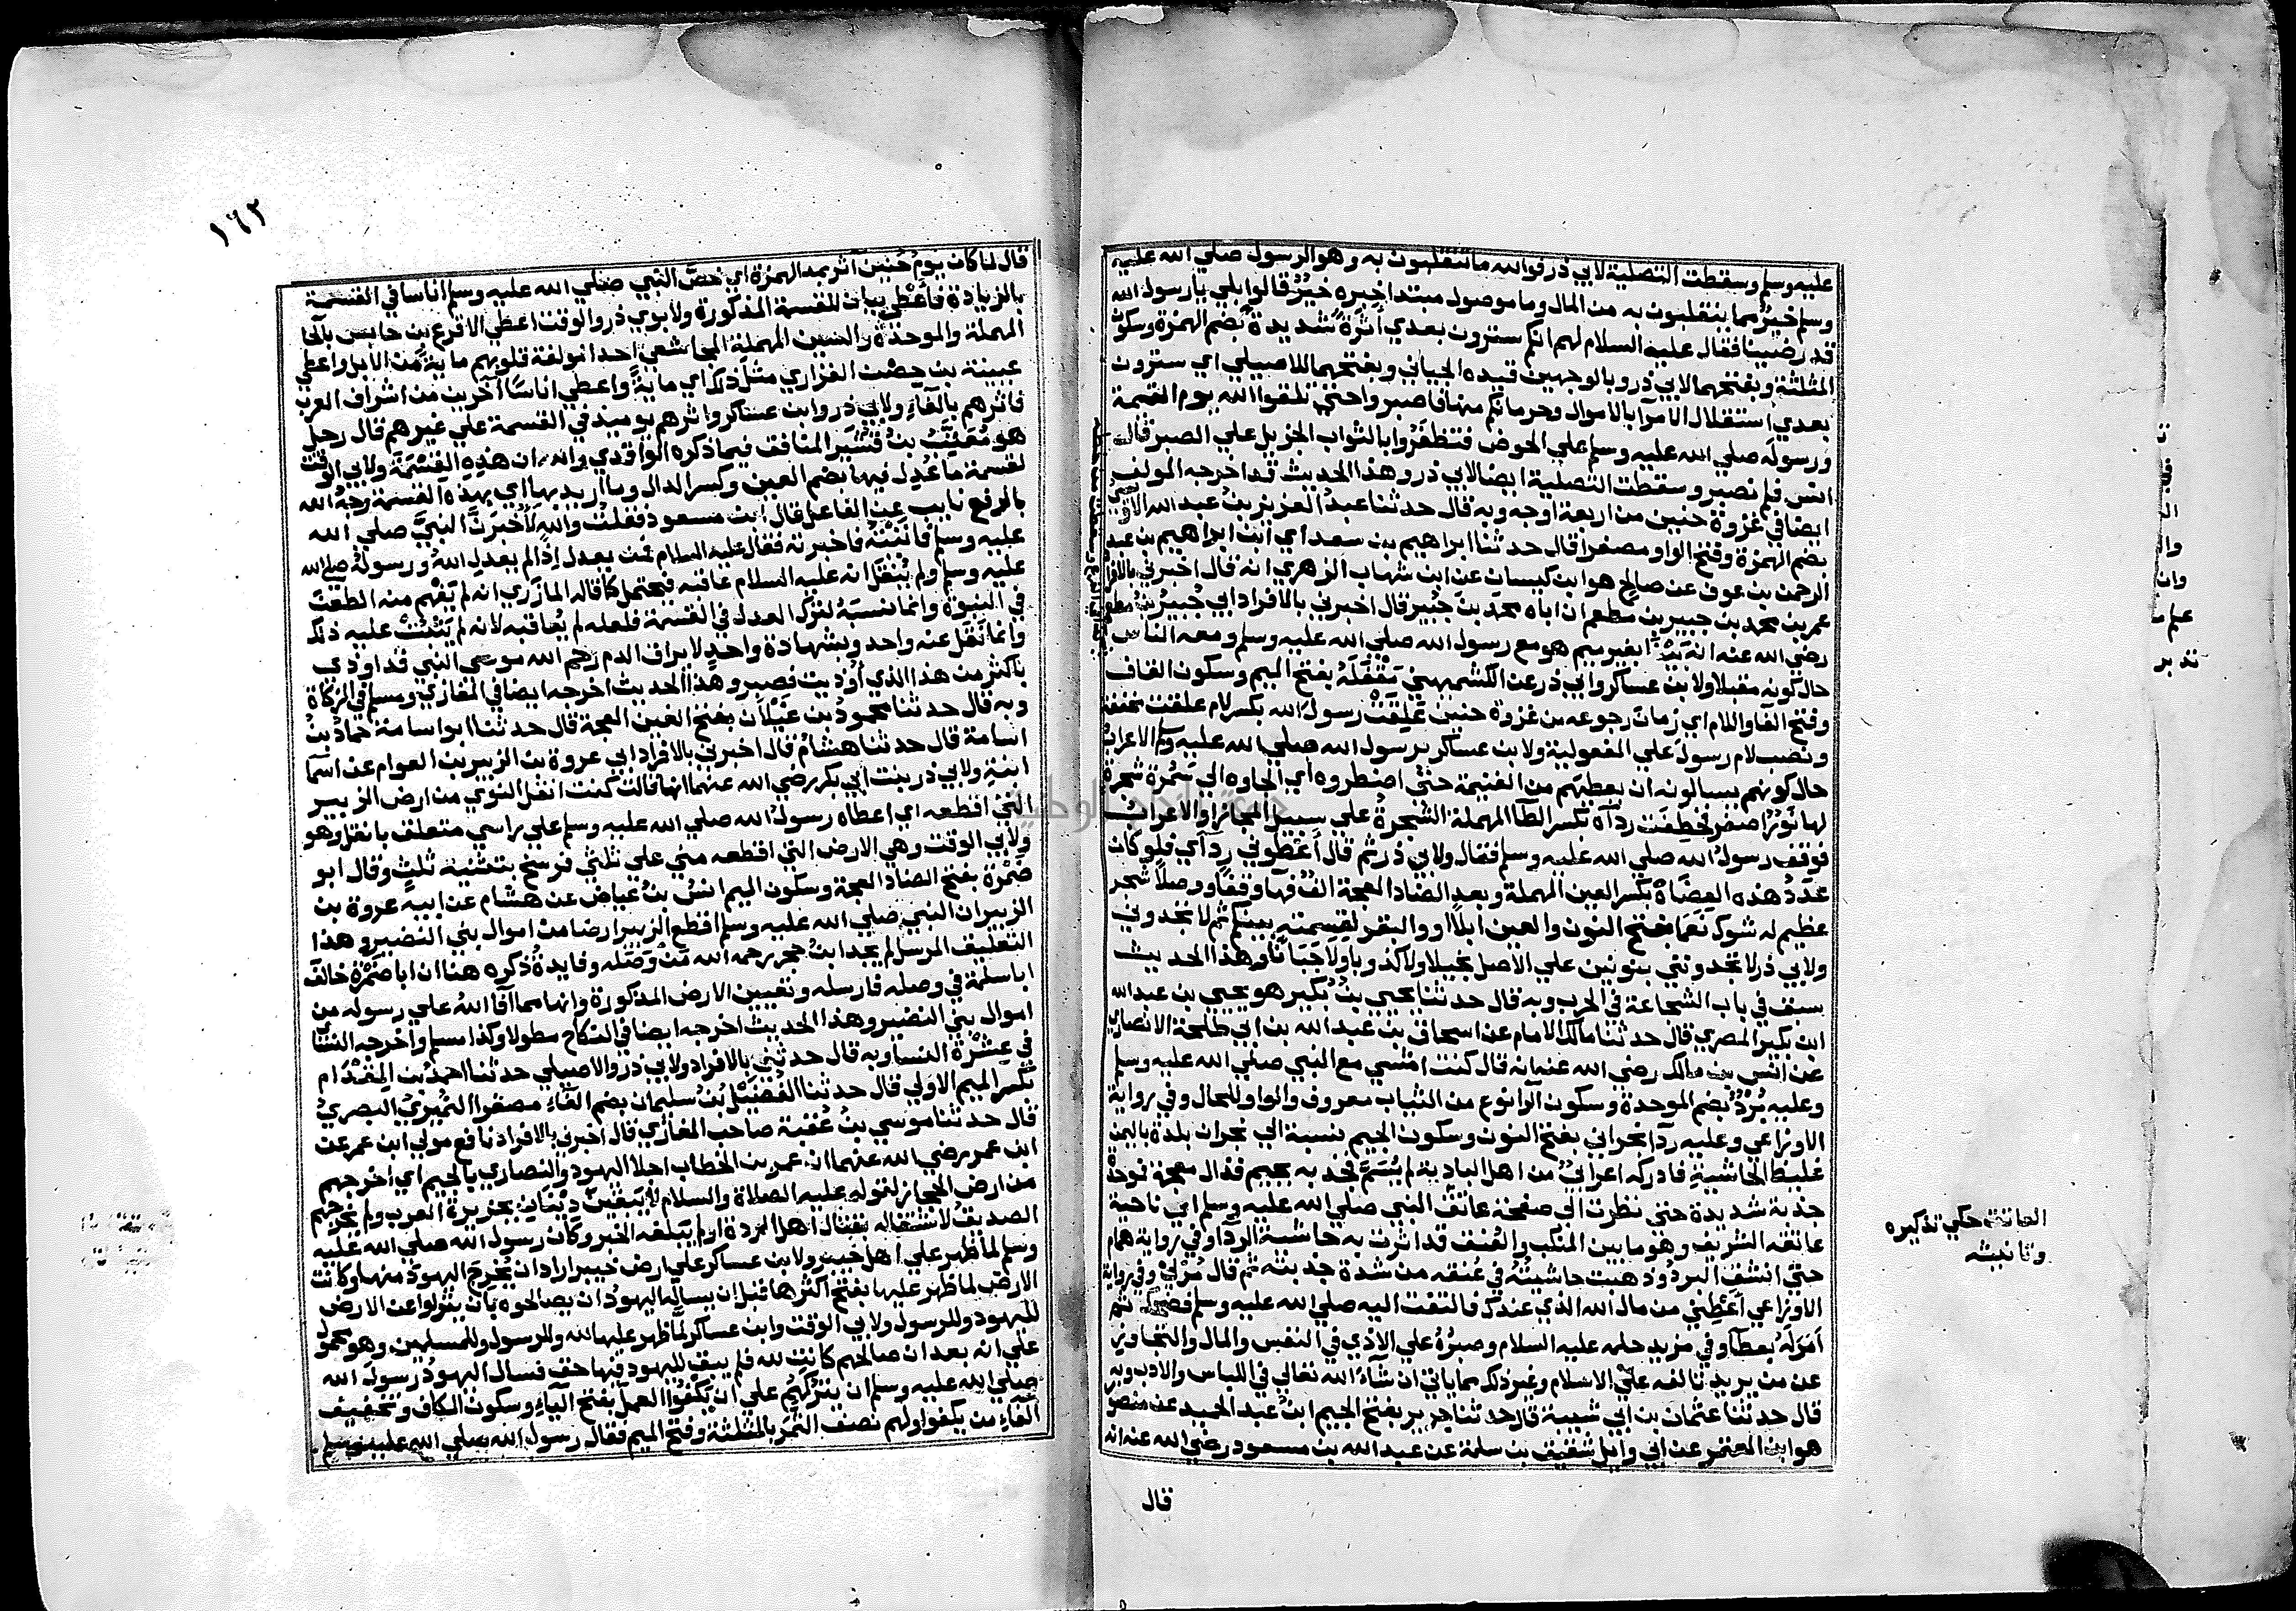 عليه وسلم وسقطت التصلية لابي ذر فوالله ما تنقلبون به وهو الرسول صلي الله عليه
وسلم خير مما ينقلبون به من المال وما موصول مبتدا خبره خير قالوا بلي يا رسول الله
قد رضينا فقال عليه السلام لهم انكم سترون بعدي أثرة شديدة بضم الهمزة وسكون
المثلثة وبفتحهما لابي ذر وبالوجهين قيده الجياني وبفتحهما للاصيلي اي سترون
بعدي استقلال الامرآ بالاموال وحرمانكم منها فاصبروا حتي تلقوا الله يوم القيمة
ورسوله صلي الله عليه وسلم علي الحوض فتظفروا بالثواب الجزيل علي الصبر قال
انس فلم نصبر وسقطت التصلية ايضا لابي ذر وهذا الحديث قد اخرجه المولف
ايضا في غزوة حنين من اربعة اوجه وبه قال حدثنا عبد العزيز بن عبد الله الاويسي
بضم الهمزة وفتح الواو مصغرا قال حدثنا ابراهيم بن سعد اي ابن ابراهيم بن عبد
الرحمن بن عوف عن صالح هو ابن كيسان عن ابن شهاب الزهري انه قال اخبرني بالافراد
عمر بن محمد بن جبير بن مطعم ان اباه محمد بن جبير قال اخبرني بالافراد ابي جبير بن مطعم
رضي الله عنه انه بينا بغير ميم هو مع رسول الله صلي الله عليه وسلم ومعه الناس
حال كونه مقبلا ولابن عساكر وابي ذر عن الكشميهني مقفله بفتح الميم وسكون القاف
وفتح الفا واللام اي زمان رجوعه من غزوة حنين علقت رسول الله بكسر لام علقت مخففة
ونصب لام رسول علي المفعولية ولابن عساكر برسول الله صلي الله عليه وسلم الاعراب
حال كونهم يسالونه ان يعطيهم من الغنيمة حتي اضطروه اي الجاوه الي سمرة شجرة
لها نور اصفر فخطفت ردآه بكسر الطآ المهملة الشجرة علي سبيل المجاز او الاعراب
فوقف رسول الله صلي الله عليه وسلم فقال ولابي ذر ثم قال أعطوني ردآي فلو كان
عدد هذه العضاه بكسر العين المهملة وبعد الضاد المعجمة الف فهآ وقفا ووصلا شجر
عظيم له شوك نعما بفتح النون والعين ابلا او والبقر لقسمته بينكم ثم لا تجدوني
ولابي ذر لا تجدونني بنونين علي الاصل بخيلا ولا كذوبا ولا جبانا وهذا الحديث
سبق في باب الشجاعة في الحرب وبه قال حدثنا يحيي بن بكير هو يحيي بن عبد الله
ابن بكير المصري قال حدثنا مالك الامام عن اسحاق بن عبد الله بن ابي طلحة الانصاري
عن انس بن مالك رضي الله عنه انه قال كنت امشي مع النبي صلي الله عليه وسلم
وعليه برد بضم الموحدة وسكون الرآ نوع من الثياب معروف والواو للحال وفي رواية
الاوزاعي وعليه ردآ نجراني بفتح النون وسكون الجيم نسبة الي نجران بلدة باليمن
غليظ الحاشية فادركه اعرابي من اهل البادية لم يسم فجذبه بجيم فذال معجمة فوحدة
جذبة شديدة حتي نظرت الي صفحة عاتق النبي صلي الله عليه وسلم اي ناحية
عاتقه الشريف وهو ما بين المنكب والعنق قد اثرت به حاشية الردآ وفي رواية همام
حتي انشق البرد وذهبت حاشيته في عنقه من شدة جذبته ثم قال مر لي وفي رواية
الاوزاعي أعطني من مال الله الذي عندك فالتفت اليه صلي الله عليه وسلم فضحك ثم
أمر له بعطآ وفي مزيد حلمه عليه السلام وصبره علي الاذي في النفس والمال والتجاوز
عن من يريد تالفه علي الاسلام وغير ذلك مما ياتي ان شاء الله تعالي في اللباس والادب وبه
قال حدثنا عثمان بن ابي شيبة قال حدثنا جرير بفتح الجيم ابن عبد الحميد عن منصور
هو ابن المعتمر عن ابي وايل شقيق بن سلمة عن عبد الله بن مسعود رضي الله عنه انه
قال
العاتق حكي تذكيره
وتانيثه
١٦٢
قال لما كان يوم حنين آثر بمد الهمزة اي خص النبي صلي الله عليه وسلم اناسا في القسمة
بالزيادة فأعطي بيان للقسمة المذكورة ولابوي ذر والوقت اعطي الاقرع بن حابس بالحا
المهملة والموحدة والسين المهملة المجاشعي احد المولفة قلوبهم ماية من الابل واعطي
عيينة بن حصن الفزاري مثل ذلك اي ماية واعطي اناسا آخرين من اشراف العرب
فآثرهم بالفاء ولابي ذر وابن عساكر وآثرهم يوميذ في القسمة علي غيرهم قال رجل
هو معتب بن قشير المنافق فيما ذكره الواقدي والله ان هذه القسمة ولابي الوقت
لقسمة ما عدل فيها بضم العين وكسر الدال وما اريد بها اي بهذه القسمة وجه الله
بالرفع نايب عن الفاعل قال ابن مسعود فقلت والله لأخبرن النبي صلي الله
عليه وسلم فأتيته فاخبرته فقال عليه السلام فمن يعدل اذا لم يعدل الله ورسوله صلي الله
عليه وسلم ولم ينقل انه عليه السلام عاقبه فيحتمل كما قاله المازري انه لم يفهم منه الطعن
في النبوة وانما نسبه لترك العدل في القسمة فلعله لم يعاقبه لانه لم يثبت عليه ذلك
وانما نقل عنه واحد وبشهادة واحد لا يراق الدم رحم الله موسي النبي قد اوذي
باكثر من هذا الذي أوذيت فصبر وهذا الحديث اخرجه ايضا في المغازي ومسلم في الزكاة
وبه قال حدثنا محمود بن غيلان بفتح الغين المعجمة قال حدثنا ابو اسامة حماد بن
اسامة قال حدثنا هشام قال اخبرني بالافراد ابي عروة بن الزبير بن العوام عن اسما
ابنة ولابي ذر بنت ابي بكر رضي الله عنهما انها قالت كنت انقل النوي من ارض الزبير
التي اقطعه اي اعطاه رسول الله صلي الله عليه وسلم علي راسي متعلق بانقل وهو
ولابي الوقت وهي الارض التي اقطعه مني علي ثلثي فرسخ بتثنية ثلث وقال ابو
ضمرة بفتح الضاد المعجمة وسكون الميم انس بن عياض عن هشام عن ابيه عروة بن
الزبير ان النبي صلي الله عليه وسلم اقطع الزبير ارضا من اموال بني النضير وهذا
التعليق المرسل لم يجد ابن حجر رحمه الله من وصله وفايدة ذكره هنا ان ابا ضمرة خالف
ابا سلمة في وصله فارسله وتعيين الارض المذكورة وانها مما آفآ الله علي رسوله من
اموال بني النضير وهذا الحديث اخرجه ايضا في النكاح مطولا وكذا مسلم واخرجه النسآ
في عشرة النسا وبه قال حدثني بالافراد ولابي ذر والاصيلي حدثنا احمد بن المقدام
بكسر الميم الاولي قال حدثنا الفضيل بن سليمان بضم الفاء مصغرا النميري البصري
قال حدثنا موسي بن عقبة صاحب المغازي قال اخبرني بالافراد نافع مولي ابن عمر عن
ابن عمر رضي الله عنهما ان عمر بن الخطاب اجلا اليهود والنصاري بالجيم اي اخرجهم
من ارض الحجاز لقوله عليه الصلاة والسلام لا يبقين دينان بجزيرة العرب ولم يخرجهم
الصديق لاشتغاله بقتال اهل الردة او لم يبلغه الخبر وكان رسول الله صلي الله عليه
وسلم لما ظهر علي اهل خيبر ولابن عساكر علي ارض خيبر اراد ان يخرج اليهود منها وكانت
الارض لما ظهر عليها بفتح اكثرها قبل ان يساله اليهود ان يصالحوه بان ينزلوا عن الارض
لليهود وللرسول ولابي الوقت وابن عساكر لما ظهر عليها لله وللرسول وللمسلمين وهو محمول
علي انه بعد ان صالحهم كانت لله فلم يبق لليهود فيها حق فسال اليهود رسول الله
صلي الله عليه وسلم ان يتركهم علي ان يكفوا العمل بفتح الياء وسكون الكاف وتخفيف
الفاء من يكفوا ولهم نصف الثمر بالمثلثة وفتح الميم فقال رسول الله صلي الله عليه وسلم